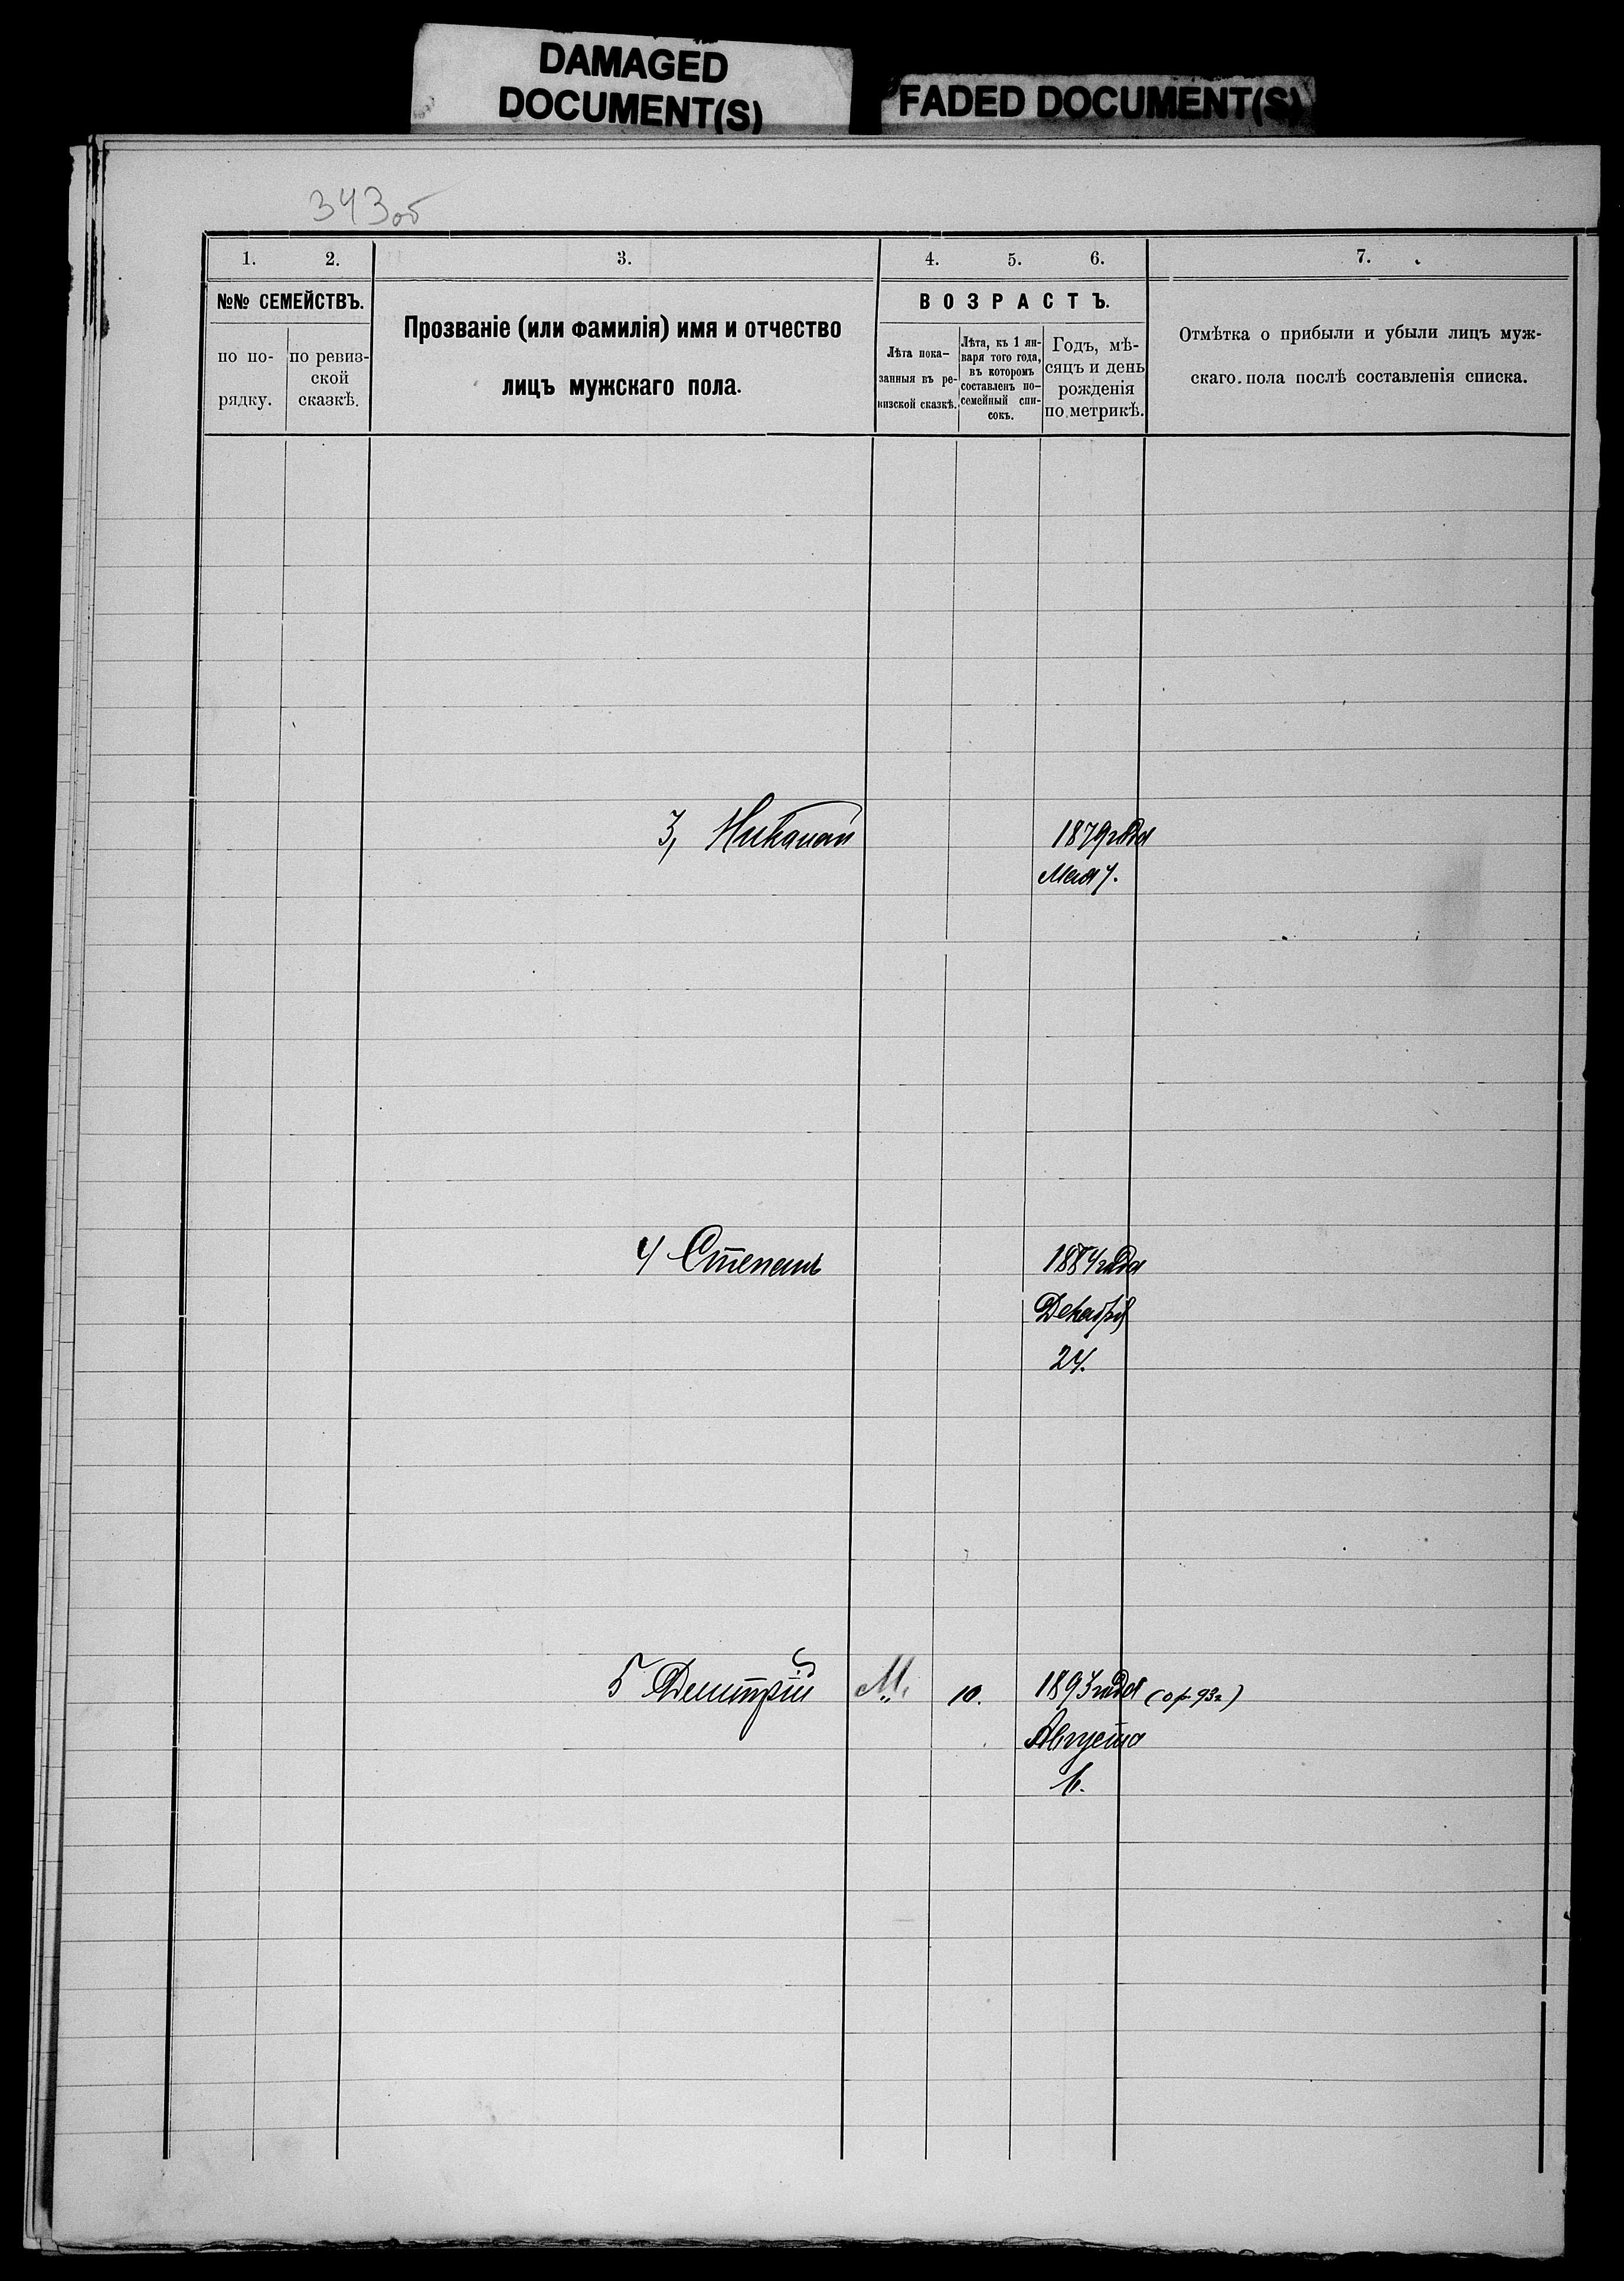 DAMAGED
DOCUMENT(S)
FADED DOCUMENT(S)
343об
1. 2. 3. 4. 5. 6. 7.
№№ СЕМЕЙСТВЪ.
по по-
рядку.
по ревиз-
ской
сказкѣ.
Прозваніе (или фамилія) имя и отчество
лицъ мужскаго пола.
ВОЗРАСТЪ.
Лѣта пока-
занныя въ ре-
визской сказкѣ.
Лѣта, къ 1 ян-
варя того года,
въ которомъ
составленъ по-
семейный спи-
сокъ.
Годъ, мѣ-
сяцъ и день
рожденія
по метрикѣ.
Отмѣтка о прибыли и убыли лицъ муж-
скаго пола послѣ составленія списка.
3, 1879 года
Мая 7.
4 Степанъ 1884 года
Декабря
24.
5 Дмитрій М. 10. 1893 года (ор. 93г)
Августа